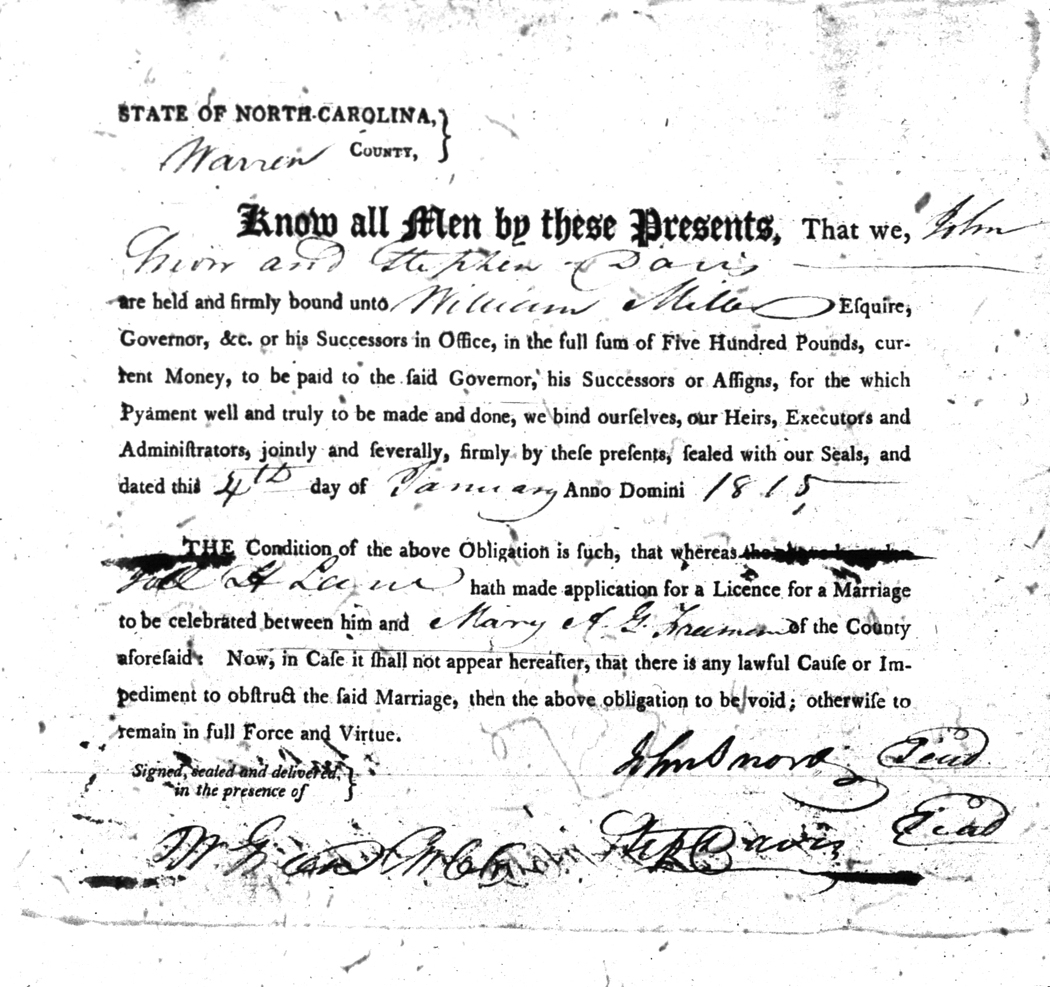 STATE OF NORTH-CAROLINA,
Warren COUNTY,
Know all Men by these Presents, That we, John
Snow and Stephen Davis
are held and firmly bound unto William Miller Eſquire,
Governor, &c. or his Successors in Office, in the full ſum of Five Hundred Pounds, cur-
rent Money, to be paid to the ſaid Governor, his Successors or Aſſigns, for the which
Pyament well and truly to be made and done, we bind ourſelves, our Heirs, Executors and
Adminiſtrators, jointly and ſeverally, firmly by theſe preſents, ſealed with our Seals, and
dated this 4th day of January Anno Domini 1815
THE Condition of the above Obligation is ſuch, that whereas
Lane hath made application for a Licence for a Marriage
to be celebrated between him and Mary A. G. Freeman of the County
aforeſaid: Now, in Caſe it ſhall not appear hereafter, that there is any lawful Cauſe or Im-
pediment to obſtruct the ſaid Marriage, then the above obligation to be void; otherwiſe to
remain in full Force and Virtue.
John Snow Seal
Signed, sealed and delivered,
in the presence of
Step Davis Seal